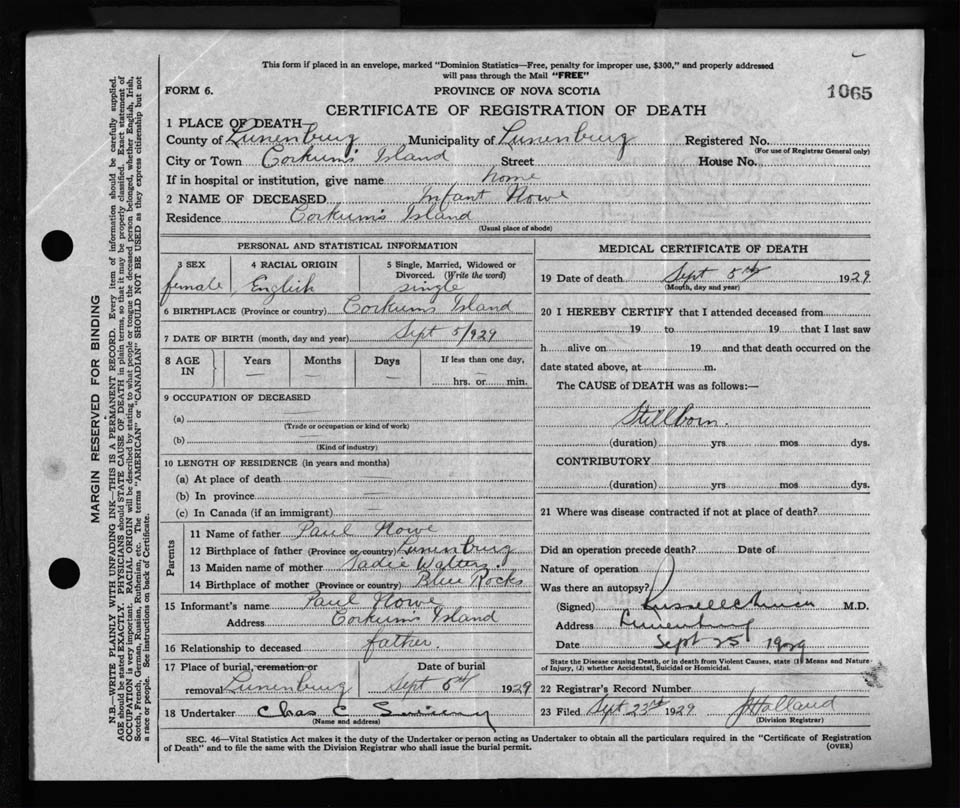 This form if placed in an envelope, marked "Dominion Statistics—Free, penalty for improper use, $300," and properly addressed
will pass through the Mail "FREE"
FORM 6.
PROVINCE OF NOVA SCOTIA
1065
CERTIFICATE OF REGISTRATION OF DEATH
1 PLACE OF DEATH—
County of Lunenburg Municipality of Lunenburg Registered No.
(For use of Registrar General only)
City or Town Corkum's Island Street House No.
If in hospital or institution, give name home
2 NAME OF DECEASED Infant Nowe
Residence Corkum's Island
(Usual place of abode)
PERSONAL AND STATISTICAL INFORMATION
3 SEX 4 RACIAL ORIGIN 5 Single, Married, Widowed or
Divorced. (Write the word)
female English single
6 BIRTHPLACE (Province or country) Corkum's Island
7 DATE OF BIRTH (month, day and year) Sept 5/929
8 AGE IN Years Months Days If less than one day,
hrs. or min.
9 OCCUPATION OF DECEASED
(a)
(Trade or occupation or kind of work)
(b)
(Kind of industry)
10 LENGTH OF RESIDENCE (in years and months)
(a) At place of death
(b) In province
(c) In Canada (if an immigrant)
Parents
11 Name of father Paul Nowe
12 Birthplace of father (Province or country) Lunenburg
13 Maiden name of mother Sadie Walters
14 Birthplace of mother (Province or country) Blue Rocks
15 Informant's name Paul Nowe
Address Corkum's Island
16 Relationship to deceased father.
17 Place of burial, cremation or Date of burial
removal Lunenburg Sept 6th 1929
18 Undertaker Chas E
(Name and address)
MEDICAL CERTIFICATE OF DEATH
19 Date of death Sept 5th 1929
(Month, day and year)
20 I HEREBY CERTIFY that I attended deceased from
19 to 19 that I last saw
h alive on 19 and that death occurred on the
date stated above, at m.
The CAUSE of DEATH was as follows:—
Stillborn.
(duration) yrs mos dys.
CONTRIBUTORY
(duration) yrs mos dys.
21 Where was disease contracted if not at place of death?
Did an operation precede death? Date of
Nature of operation
Was there an autopsy?
(Signed) M.D.
Address Lunenburg
Date Sept 25 1929
State the Disease causing Death, or in death from Violent Causes, state (1) Means and Nature
of Injury, (2) whether Accidental, Suicidal or Homicidal.
22 Registrar's Record Number
23 Filed Sept 23rd 1929 J Holland
(Division Registrar)
SEC. 46—Vital Statistics Act makes it the duty of the Undertaker or person acting as Undertaker to obtain all the particulars required in the "Certificate of Registration
of Death" and to file the same with the Division Registrar who shall issue the burial permit.
(OVER)
MARGIN RESERVED FOR BINDING
N.B—WRITE PLAINLY WITH UNFADING INK—THIS IS A PERMANENT RECORD. Every item of information should be carefully supplied.
AGE should be stated EXACTLY. PHYSICIANS should STATE CAUSE OF DEATH in plain terms, so that it may be properly classified. Exact statement of
OCCUPATION is very important. RACIAL ORIGIN will be described by stating to what people or tongue the deceased person belonged, whether English, Irish,
Scotch, French, German, Russian, Ruthenian, etc. The terms "AMERICAN" or "CANADIAN" SHOULD NOT BE USED as they express citizenship but not
a race or people. See instructions on back of Certificate.